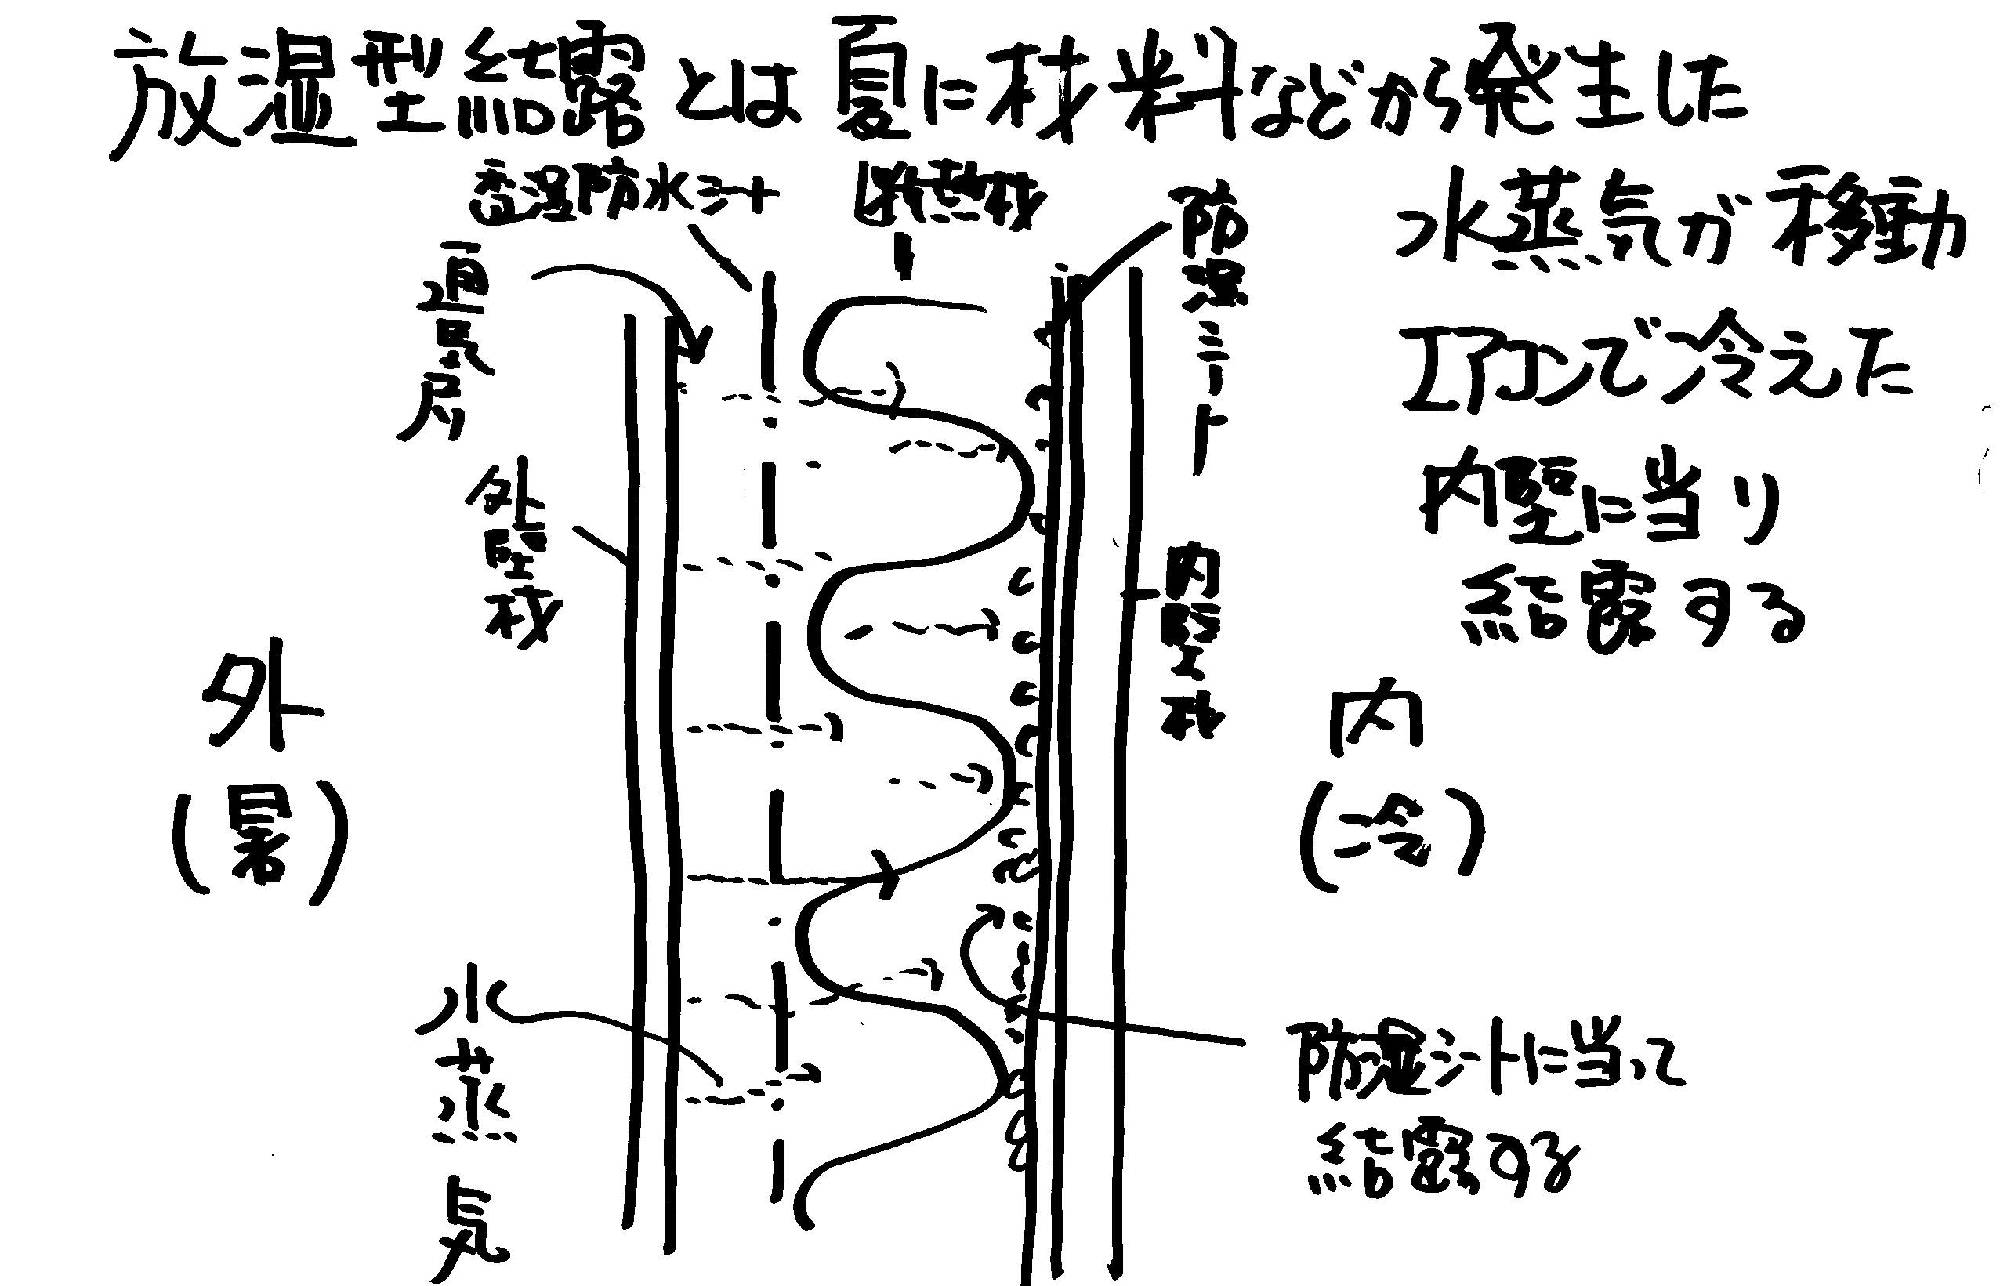 放湿型結露とは夏に材料などから発生した
水蒸気が移動
エアコンで冷えた
内壁に当り
結露する
透湿防水シート
断熱材
防湿シート
通気層
外壁材
内壁材
外
(暑)
内
(冷)
水蒸気
防湿シートに当って
結露する